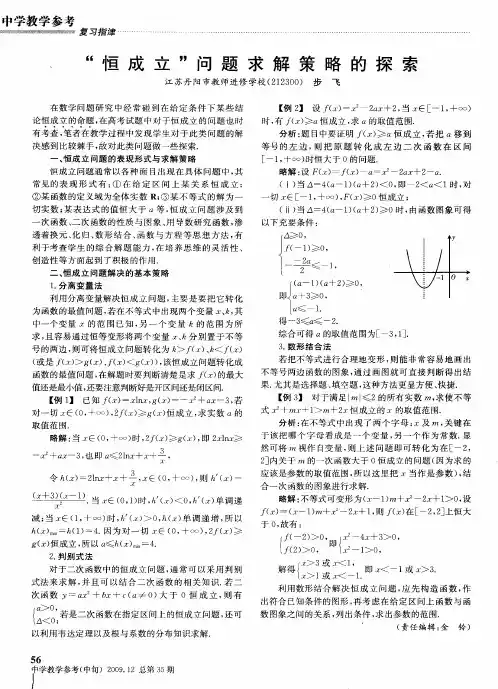 中学教学参考
复习指津
“恒成立”问题求解策略的探索
江苏丹阳市教师进修学校(212300) 步 飞
在数学问题研究中经常碰到在给定条件下某些结
论恒成立的命题,在高考试题中对于恒成立的问题也时
有考查,笔者在教学过程中发现学生对于此类问题的解
决感到比较棘手,故对此类问题做一些探索.
一、恒成立问题的表现形式与求解策略
恒成立问题通常以各种面目出现在具体问题中,其
常见的表现形式有:①在给定区间上某关系恒成立;
②某函数的定义域为全体实数 R;③某不等式的解为一
切实数;某表达式的值恒大于 a 等,恒成立问题涉及到
一次函数、二次函数的性质与图象、用导数研究函数,渗
透着换元、化归、数形结合、函数与方程等思想方法,有
利于考查学生的综合解题能力,在培养思维的灵活性、
创造性等方面起到了积极的作用.
二、恒成立问题解决的基本策略
1.分离变量法
利用分离变量解决恒成立问题,主要是要把它转化
为函数的最值问题,若在不等式中出现两个变量 x、k,其
中一个变量 x 的范围已知,另一个变量 k 的范围为所
求,且容易通过恒等变形将两个变量 x、k 分别置于不等
号的两边,则可将恒成立问题转化为 k>f(x)、k<f(x)
(或是 f(x)>g(x)、f(x)<g(x)),该恒成立问题转化成
函数的最值问题,在解题时要判断清楚是求 f(x)的最大
值还是最小值,还要注意判断好是开区间还是闭区间.
【例1】 已知 f(x)=xlnx,g(x)=-x²+ax-3,若
对一切 x∈(0,+∞),2f(x)≥g(x)恒成立,求实数 a 的
取值范围.
略解:当 x∈(0,+∞)时,2f(x)≥g(x),即 2xlnx≥
-x²+ax-3,也即 a≤2lnx+x+3/x,
令 h(x)=2lnx+x+3/x,x∈(0,+∞),则 h′(x)=
(x+3)(x-1)/x².当 x∈(0,1)时,h′(x)<0,h′(x)单调递
减;当 x∈(1,+∞)时,h′(x)>0,h(x)单调递增,所以
h(x)min=h(1)=4.因为对一切 x∈(0,+∞),2f(x)≥
g(x)恒成立,所以 a≤h(x)min=4.
2.判别式法
对于二次函数中的恒成立问题,通常可以采用判别
式法来求解,并且可以结合二次函数的相关知识.若二
次函数 y=ax²+bx+c(a≠0)大于 0 恒成立,则有
{a>0,
Δ<0; 若是二次函数在指定区间上的恒成立问题,还可
以利用韦达定理以及根与系数的分布知识求解.
【例2】 设 f(x)=x²-2ax+2,当 x∈[-1,+∞)
时,有 f(x)≥a 恒成立,求 a 的取值范围.
分析:题目中要证明 f(x)≥a 恒成立,若把 a 移到
等号的左边,则把原题转化成左边二次函数在区间
[-1,+∞)时恒大于 0 的问题.
略解:设 F(x)=f(x)-a=x²-2ax+2-a.
(ⅰ)当 Δ=4(a-1)(a+2)<0,即-2<a<1 时,对
一切 x∈[-1,+∞),F(x)≥0 恒成立;
(ⅱ)当 Δ=4(a-1)(a+2)≥0 时,由函数图象可得
以下充要条件:
{Δ≥0,
f(-1)≥0,
-(-2a)/2≤-1,
即{(a-1)(a+2)≥0,
a+3≥0,
a≤-1.
得-3≤a≤-2.
y
-1 O x
综合可得 a 的取值范围为[-3,1].
3.数形结合法
若把不等式进行合理地变形,则能非常容易地画出
不等号两边函数的图象,通过画图就可直接判断得出结
果.尤其是选择题、填空题,这种方法更显方便、快捷.
【例3】 对于满足|m|≤2 的所有实数 m,求使不等
式 x²+mx+1>m+2x 恒成立的 x 的取值范围.
分析:在不等式中出现了两个字母:x 及 m,关键在
于该把哪个字母看成是一个变量,另一个作为常数.显
然可将 m 视作自变量,则上述问题即可转化为在[-2,
2]内关于 m 的一次函数大于 0 恒成立的问题(因为求的
应该是参数的取值范围,所以这里把 x 当作是参数),结
合一次函数的图象进行求解.
略解:不等式可变形为(x-1)m+x²-2x+1>0,设
f(x)=(x-1)m+x²-2x+1,则 f(x)在[-2,2]上恒大
于 0,故有:
{f(-2)>0,
f(2)>0, 即{x²-4x+3>0,
x²-1>0,
解得{x>3 或 x<1,
x>1 或 x<-1. 即 x<-1 或 x>3.
利用数形结合解决恒成立问题,应先构造函数,作
出符合已知条件的图形,再考虑在给定区间上函数与函
数图象之间的关系,列出条件,求出参数的范围.
(责任编辑:金 铃)
56
中学教学参考(中旬) 2009.12 总第35期